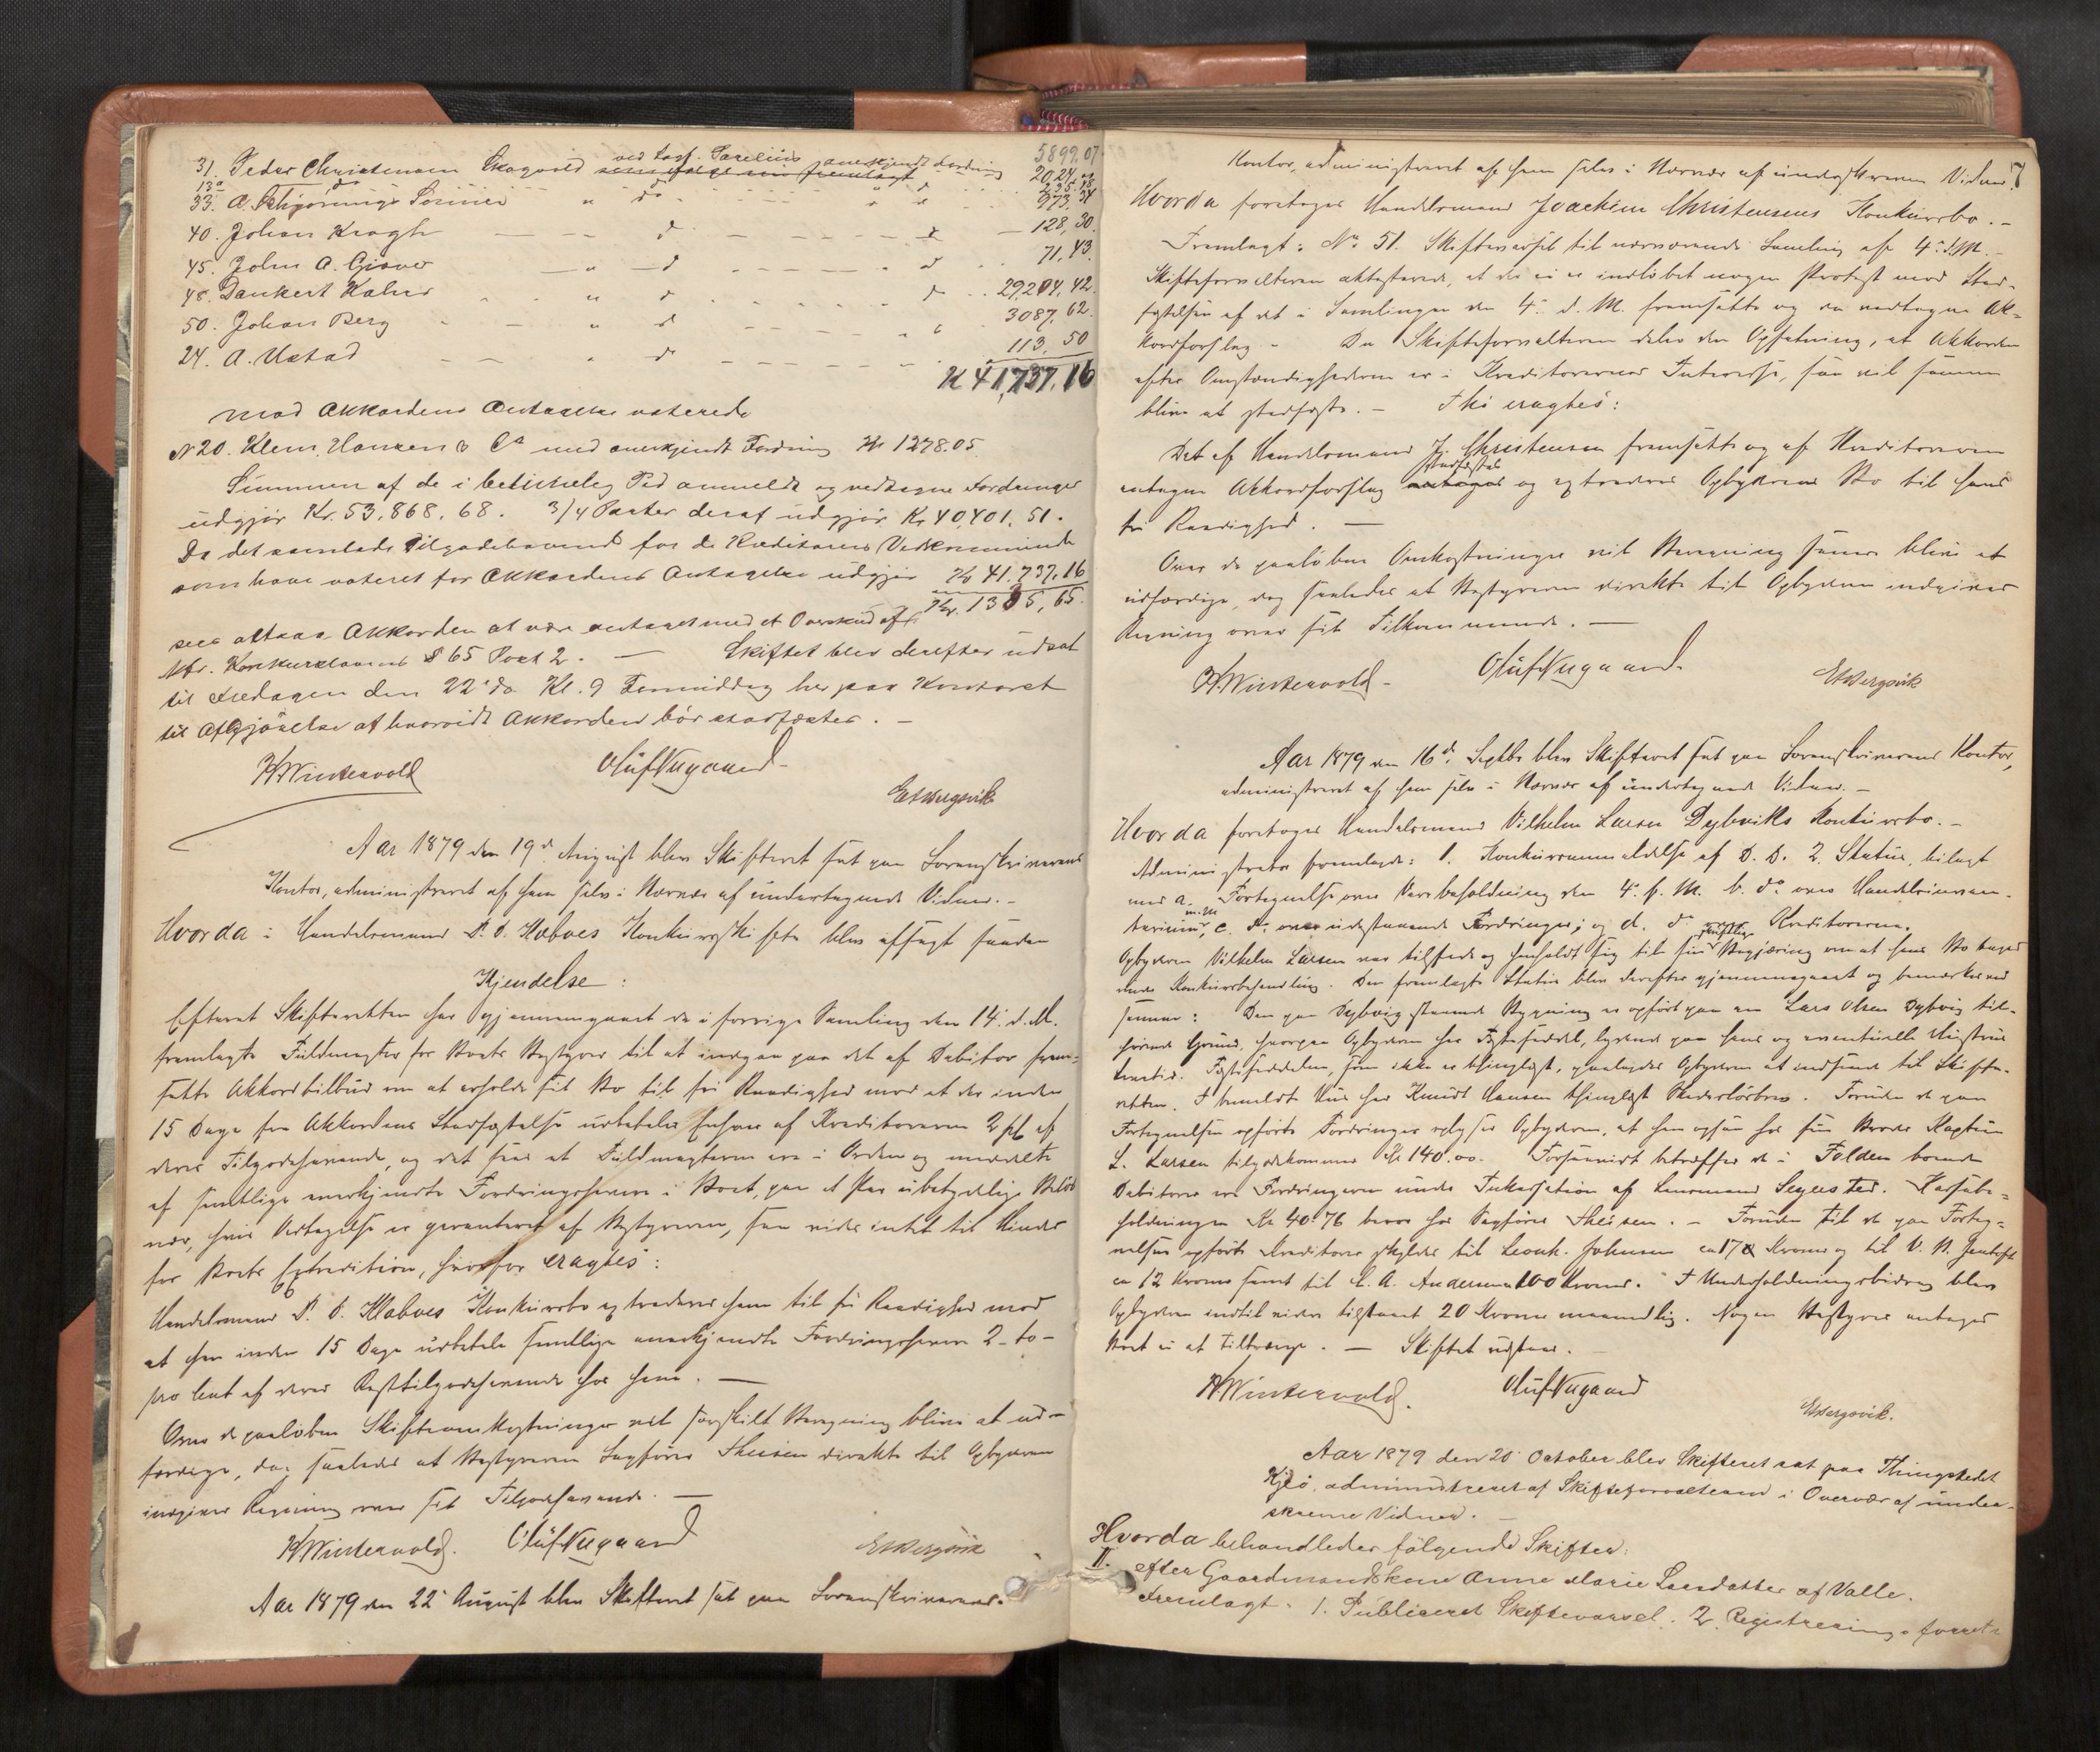 5899,07
31. Peder Christensen Skagvold ved Sagf. anerkjendt Fordring 2024
33. A. Sønner " do " d 973,34
40. Johan Kragh d d 128,30.
45. John A. Giæver " d d 71,43.
48. Dankert Holm " d d 29,204,42.
50. Johan Berg " d " 3087,62.
24. A. Ustad " d 113,50
K 41,737,16
mod Akkordens Antagelse voterede
N 20. Klem, Hansen & Co med anerkjendt Fordring Kr 1278.05
Summen af de i betimelig Tid anmeldte og vedtagne Fordringer
udgjør Kr. 53,868,68. 3/4 Parter deraf udgjør Kr 40,401,51.
Da det samlede Tilgodehavende for de Kreditorers Vedkommende
som have voteret for Akkordens Antagelse udgjør Kr 41,737,16
sees altsaa Akkorden at være antaget med et Overskud af Kr. 1335,65.
Mfr. Konkurslovens § 65 Post 2. — Skiftet blev derefter udsat
til Fredagen den 22' ds Kl. 9 Formiddag her paa Kontoret
til Afgjørelse af hvorvidt Akkorden bör stadfæstes. –
H Wintervold Oluf Nygaard E Bergsvik
Aar 1879 den 19d August blev Skifteret sat paa Sorenskriverens
Kontor, administreret af ham selv i Nærvær af undertegnede Vidner. –
Hvorda i Handelsmand P. O. Konkursskifte blev afsagt saadan
Kjendelse:
Efterat Skifteretten har gjennemgaaet de i forrige Samling den 14' d. M.
fremlagte Fuldmagter for Boets Bestyrer til at indgaa paa det af Debitor frem-
satte Akkordtilbud om at erholde sit Bo til fri Raadighed mod at der inden
15 Dage fra Akkordens Stadfæstelse udbetales Enhver af Kreditorerne 2 pCt af
deres Tilgodehavende, og det sees at Fuldmagterne ere i Orden og meddelte
af samtlige anerkjendte Fordringshavere i Boet, paa et Par ubetydelige Beløb
nær, hvis Vedtagelse er garanteret af Bestyreren, saa vides intet til Hinder
for Boets Extradition, hvorfor eragtes:
Handelsmand P. O. Konkursbo extraderes ham til fri Raadighed mod
at han inden 15 Dage udbetaler samtlige anerkjendte Fordringshavere 2 – to –
pro Cent af deres Resttilgodehavende hos ham. —
Over de paaløbne Skifteomkostninger vil særskilt Beregning blive at ud-
færdige, dog saaledes at Bestyreren Sagfører Theisen direkte til Opbyderen
indgiver Regning over sit Tilgodehavende. —
H Wintervold. Oluf Nygaard E Bergsvik
Aar 1879 den 22' August blev Skifteret sat paa Sorenskriverens
7
Kontor, administreret af ham selv i Nærvær af undertegnede Vidner.
Hvorda foretages Handelsmand Joachim Christensens Konkursbo. –
Fremlagt: No 51. Skiftevarsel til nærværende Samling af 4' d. M. –
Skifteforvalteren attesterede, at der ei er indløbet nogen Protest mod Stad-
fæstelsen af det i Samlingen den 4' d. M. fremsatte og da vedtagne Ak-
kordforslag – Da Skifteforvalteren deler den Opfatning, at Akkorden
efter Omstændighederne er i Kreditorernes Interesse, saa vil samme
blive at stadfæste. – Thi eragtes:
Det af Handelsmand J. Christensen fremsatte og af Kreditorerne
antagne Akkordforslag stadfæstes og extraderes Opbyderens Bo til hans
fri Raadighed. —
Over de paaløbne Omkostninger vil Beregning samme blive at
udfærdige, dog saaledes at Bestyreren direkte til Opbyderen indgiver
Regning over sit Tilkommende. —
H Wintervold – Oluf Nygaard. E Bergsvik
Aar 1879 den 16d. Septbr blev Skifteret sat paa Sorenskriverens Kontor,
administreret af ham selv i Nærvær af undertegnede Vidner. –
Hvorda foretoges Handelsmand Vilhelm Larsen Dybviks Konkursbo. –
Administrator fremlagde: 1. Konkursanmeldelse af D. D. 2. Status, bilagt
med a. Fortegnelse over Varebeholdning den 4' f. M. b. do over Handelsinven-
tarium m. M., c. do over udestaaende Fordringer; og d. do over Kreditorerne.
Opbyderen Vilhelm Larsen var tilstede og henholdt sig til sin skriftlige Begjæring om at hans Bo tages
under Konkursbehandling. Den fremlagte Status blev derefter gjennemgaaet og bemærkes ved
samme: Den paa Dybvig staaende Bygning er opført paa en Lars Olsen Dybvig til-
hørende Grund, hvorpaa Opbyderen har Fæsteseddel, lydende paa hans og eventuelle Hustrues
Levetid. Fæstesedlen, som ikke er thinglæst, paalagdes Opbyderen at indsende til Skifte-
retten. I bemeldte Huus har Knudt Hansen thinglæst Pantobligation. Foruden de paa
Fortegnelsen opførte Fordringer oplyser Opbyderen, at han ogsaa hos sin Broder Kaptein
L. Larsen tilgodekommer Kr 140.00. Forsaavidt betræffer de i Folden boende
Debitorer ere Fordringerne under Inkassation af Lensmand Segelsted. Kassabe-
holdningen Kr 40.76 beror hos Sagfører Theisen. – Foruden til de paa Forteg-
nelsen opførte Kreditorer skyldes til Leonh. Johnsen ca 170 Kroner og til
ca 12 Kroner samt til C. A. Andersen 100 Kroner. I Underholdningsbidrag blev
Opbyderen indtil videre tilstaaet 20 Kroner maanedlig. Nogen Bestyrer antages
Boet ei at tiltrænge. — Skiftet udstaar.
H Wintervold. Oluf Nygaard E Bergsvik.
Aar 1879 den 20' October blev Skifteret sat paa Thingstedet
Kjlö, administreret af Skifteforvalteren i Overvær af under-
skrevne Vidner. –
Hvorda behandledes fölgende Skifter:
II. efter Gaardmandskone Anne Marie Larsdatter af Valle.
Fremlagt: 1. Publiceret Skiftevarsel. 2. Registrerings forret